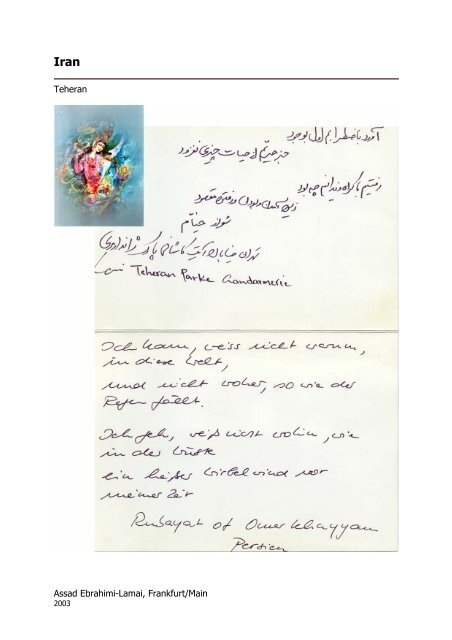 Iran
Teheran
آورد باضطرابم اول بوجود
جز حیرتم از حیات چیزی نفزود
رفتیم باکراه و ندانیم چه بود
زین آمدن و بودن و رفتن مقصود
خیام
تهران خیابان آیت کاشانی پارک ژاندارمری
Teheran Parke Gandarmerie
Ich kam, weiss nicht warum,
in diese Welt,
und nicht woher, so wie der
Regen fällt.
Ich geh, weiß nicht wohin, wie
in der Wüste
ein heißer Wirbelwind vor
meiner Zeit
Rubayat of Omer Khayyam
Persien
Assad Ebrahimi-Lamai, Frankfurt/Main
2003